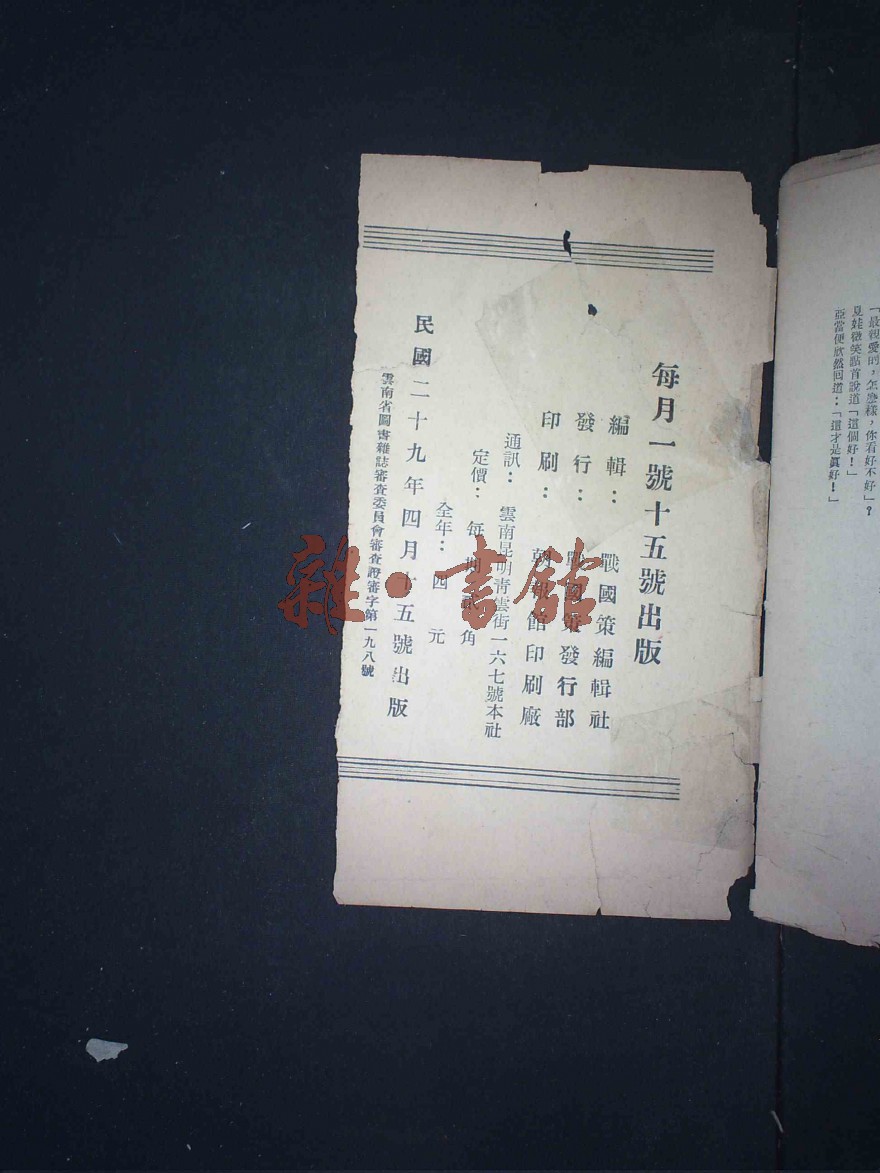 「最親愛的，怎麼樣，你看好不好」？
夏娃微笑點首說道「這個好！」
亞當便欣然回道：「這才是眞好！」
每月一號十五號出版
編輯：戰國策編輯社
發行：戰國策發行部
印刷：朝報館印刷廠
通訊：雲南昆明青雲街一六七號本社
定價：每期貳角
全年：四元
民國二十九年四月十五號出版
雲南省圖書雜誌審查委員會審查證審字第一九八號
雜·書館